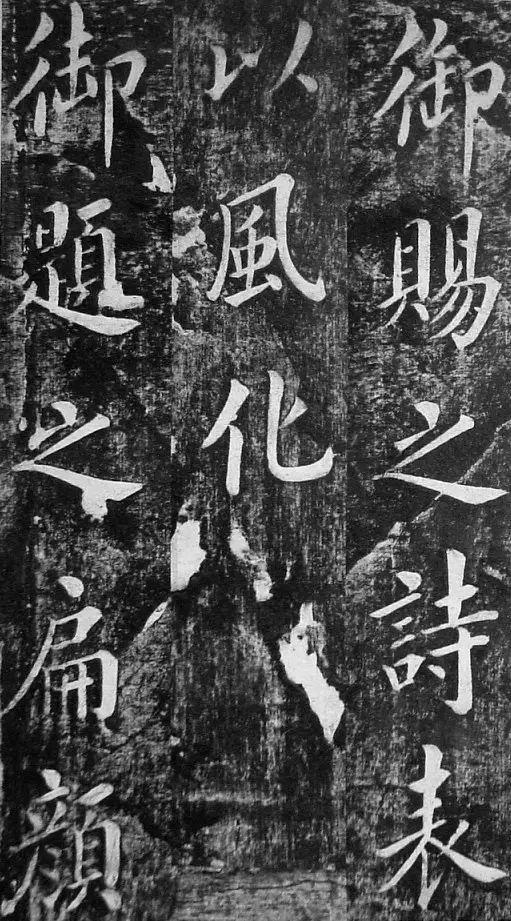 御賜之詩表
以風化
御題之扁顏